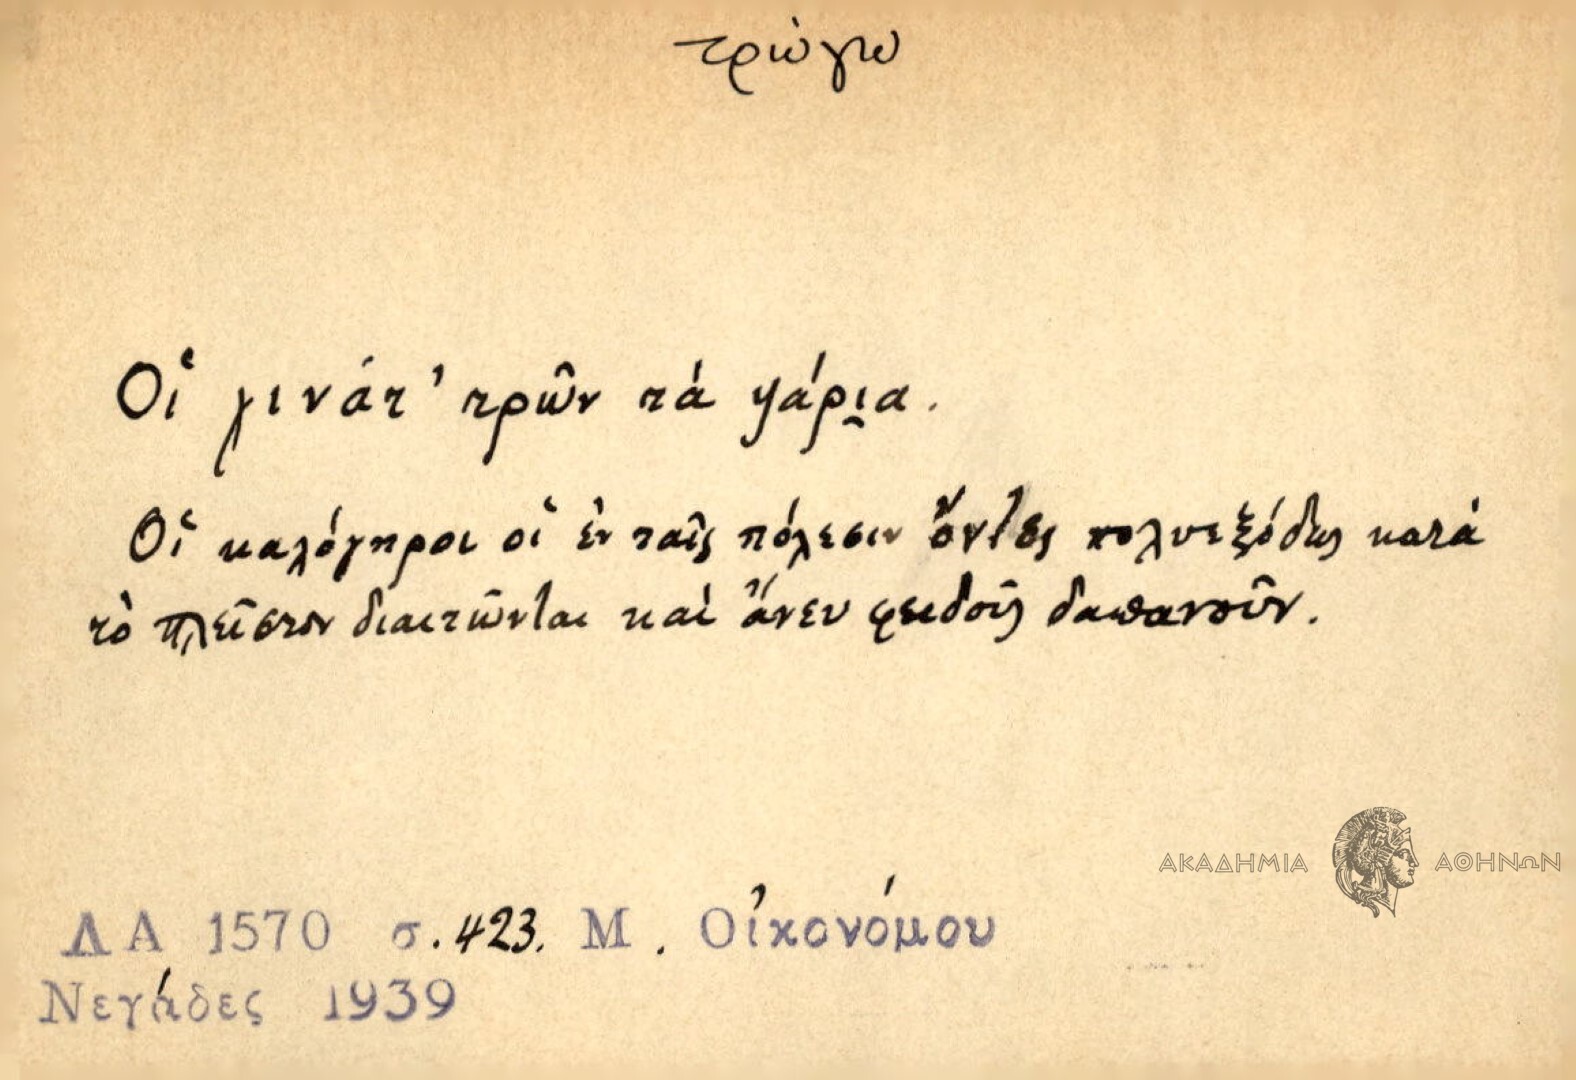 τρώγω
Οἱ γινάτ' τρῶν τά ψάρι̯α.
Οἱ καλόγηροι οἱ ἐν ταῖς πόλεσιν ὄντες πολυεξόδως κατά
τό πλεῖστον διαιτῶνται καί ἄνευ φειδοῦς δαπανοῦν.
ΑΚΑΔΗΜΙΑ ΑΘΗΝΩΝ
ΛΑ 1570 σ. 423. Μ. Οἰκονόμου
Νεγάδες 1939